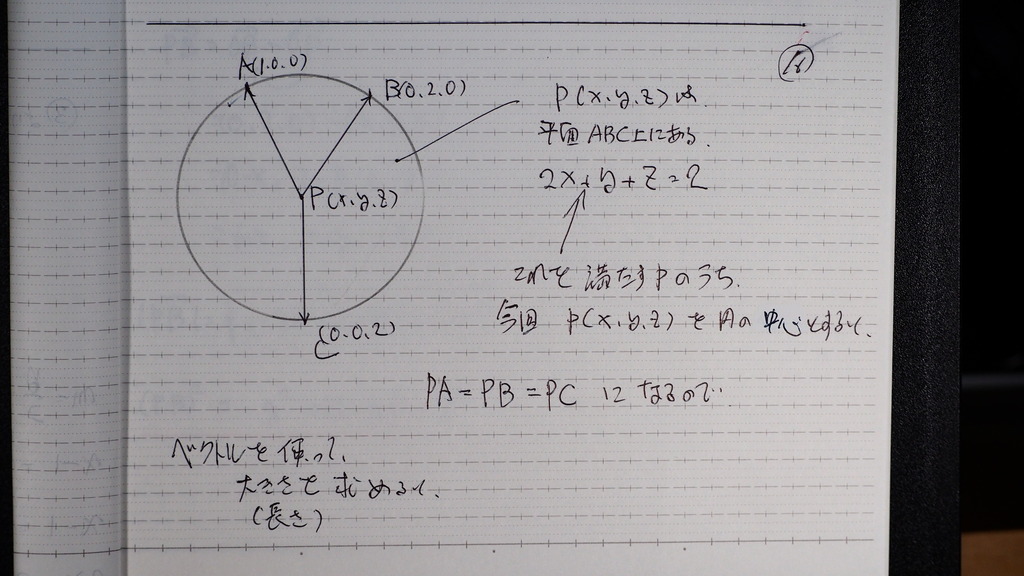 A(1.0.0)
B(0.2.0)
P(x.y.z)は
平面ABC上にある.
2x+y+z=2
P(x.y.z)
これを満たすPのうち.
C(0.0.2)
今回 P(x.y.z)を円の中心とすると.
PA=PB=PC になるので..
ベクトルを使って.
大きさを求めると.
(長さ)